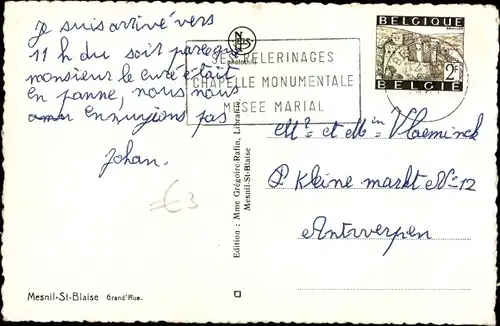 Je suis arrivé vers
11 h du soit parceque
monsieur le curé était
en panne, nous nous
ennuyions pas
Johan.
€3
SES PELERINAGES
CHAPELLE MONUMENTALE
MUSEE MARIAL
BELGIQUE
2F
BELGIE
Edition : Mme Grégoire-Rafin, Librairie
Mesnil-St-Blaise
Mr et Mm Vlaeminck
P Kleine markt No 12
Antwerpen
Mesnil-St-Blaise Grand'Rue.